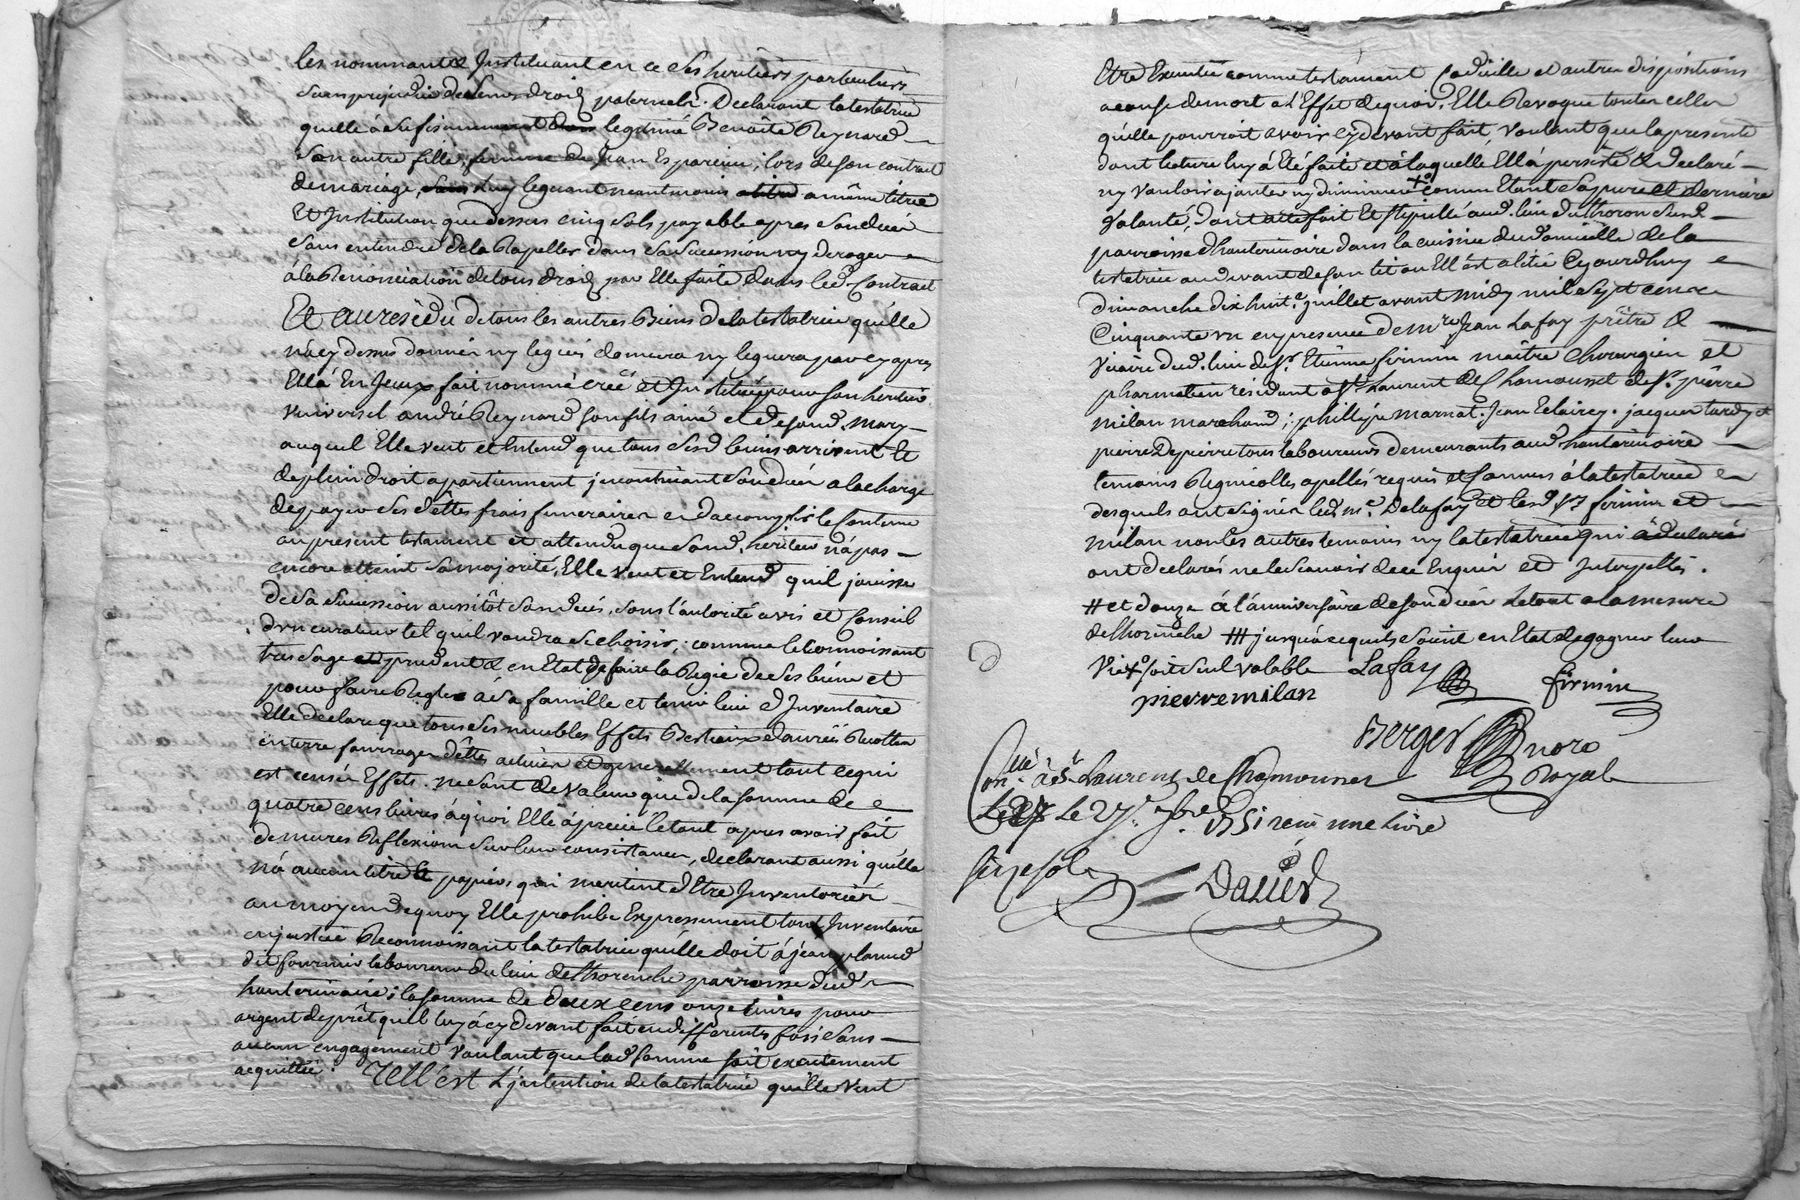 les nommant & Jnstituant en ce ses heritiers particuliers
sans prejudice de leurs droits paternels. Declarant latestatrice
quelle à suffisamment legitimé Benoite Reynard
son autre fille, femme de Jean Esparcieu, lors de son contract
de mariage, luy leguant neantmoins a même titre
Et Jnstitution que dessus cinq sols payable apres son deces
sans entendre de la Rapeller dans sa succession ny deroger
á la Renonciation de tous droits par Elle faite dans led. Contract
Et au residu de tous les autres Biens de latestatrice quélle
ná cy dessus donnés ny legués donnera ny leguera par cy apres
Ellá En Jceux fait nommé créé et Jnstitué pour son heritier
universel andré Reynard son fils ainé et de feu d. mary
auquel Elle veut et Entend que tous sesd. biens arrivent Et
de plein droit apartiennent jncontinant son deces a la charge
de payer ses dettes frais funeraires et d'accomplir le Contenu
au present testament et attendu que sond. heritier ná pas
encore atteint sa majorité, Elle veut et Entend quil jouisse
de sa succession aussitôt son deces, sous l'autorité avis et Conseil
d'un curateur tel quil voudra se choisir; comme le connoissant
tres sage et prudent & en Etat de faire la Regie de ses biens et
pour faire Regle á sa famille et tenir lieu d'Jnventaire
Elle declare que tous ses meubles Effets Bestiaux danrées Recoltes
en terre fourrages dettes actives et generallement tout ce qui
est censés Effets. ne sont de valeur que de la somme de
quatre cens livres á quoi Elle á precié le tout apres avoir fait
de mures Reflexions sur leur consistance, declarant aussi quélle
ná aucun titre & papiers qui meritent d'Etre Jnventoriés
au moyen de quoy Elle prohibe Expressement tout Jnventaire
en justice Reconnoissant latestatrice quélle doit á jean
dit fournier laboureur du lieu de Thorenche parroisse dud.
hauterivoire; la somme de deux cens onze livres pour
argent de prêt quil luy á cy devant fait en differentes fois sans
aucun engagement voulant que lad. somme soit exactement
acquittée. Tell'est L'jntention de latestatrice quélle veut
Etre Executée comme testament Codicille et autres dispositions
a cause de mort a L'Effet de quoi, Elle Revoque toutes celles
quélle pourroit avoir cy devant fait, voulant que la presente
dont lecture luy á Eté faite et á laquelle Ell á persisté & declaré
ny vouloir ajouter ny diminuer comm Etant sa pure et derniere
Volonté, dont acte fait Et stipullé aud. lieu du Thoron sus d.
parroisse d'hauterivoire dans la cuisine du domicille de la
testatrice au devant de son lit ou Ell'est alitée Cejourdhuy
dimanche dix huite juillet avant midy mil sept cens
Cinquante un en presence de mre Jean Lafay prêtre &
vicaire dud. lieu de Sr. Etienne firmin maître Chirurgien et
pharmatien residant a St. Laurent de Chamousset de Sr. pierre
milan marchand; phillipe marnat. Jean Eclairey. jacques tardy et
pierre Depierre tous laboureurs demeurants aud. hauterivoire
temoins Regnicolles apellés requis et connus á latestatrice
desquels ont signés led. mre Delafay et lesd. Srs firmin et
milan non les autres temoins ny latestatrice qui
ont declarés ne le scavoir de ce Enquis et Jnterpellés.
# et douze á l'anniversaire de son deces le tout a la mesure
de Thorinche ### jusquá ce quils soient en Etat de gagner leur
vie +o soit seul valable Lafay firmin
pierre milan
Berger nore
Royal
Conllé á St Laurent de Chamousset
Le 27e 7bre 1751 reçu une livre
seize sols
David